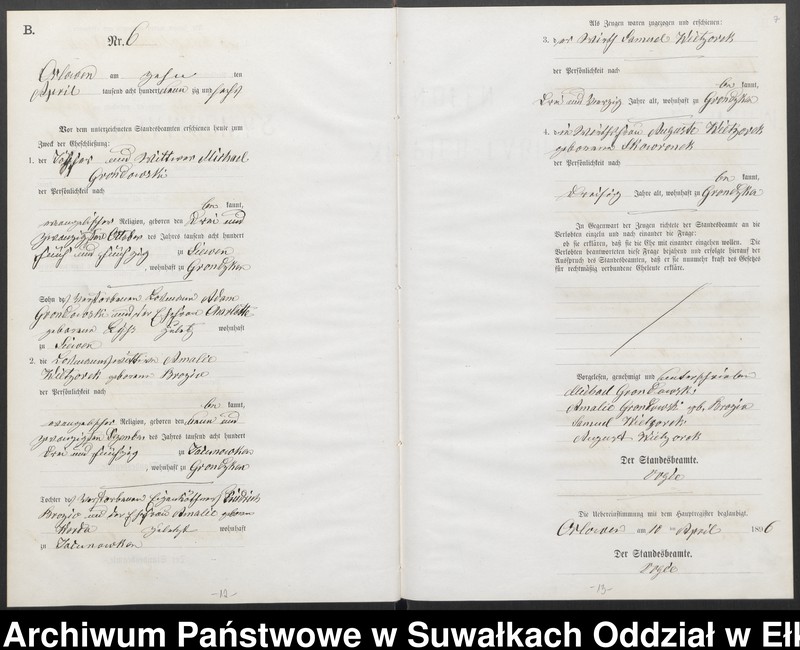 B.
Nr. 6
Orlowen am zehnten
April tausend acht hundert neunzig und sechs
Vor dem unterzeichneten Standesbeamten erschienen heute zum
Zweck der Eheschließung:
1. der und Wittwer Michael
Grondowski
der Persönlichkeit nach
be kannt,
evangelischer Religion, geboren den drei und
zwanzigsten Oktober des Jahres tausend acht hundert
fünf und fünfzig zu Siewen
, wohnhaft zu Grondzken
Sohn des verstorbenen Losmann Adam
Grondowski und der Ehefrau Charlotte
geborene zuletzt wohnhaft
zu Siewen
2. die Losmannswittwe Amalie
Wietzorek geborene Brozio
der Persönlichkeit nach
be kannt,
evangelischer Religion, geboren den neun und
zwanzigsten Dezember des Jahres tausend acht hundert
drei und fünfzig zu Jakunowken
, wohnhaft zu Grondzken
Tochter des verstorbenen Eigenkäthners Friedrich
Brozio und der Ehefrau Amalie geboren
zuletzt wohnhaft
zu Jakunowken
-12-
7
Als Zeugen waren zugezogen und erschienen:
3. der Wirth Samuel Wietzorek
der Persönlichkeit nach
be kannt,
drei und vierzig Jahre alt, wohnhaft zu Grondzken
4. die Wirthsfrau Auguste Wietzorek
geborene Skowronek
der Persönlichkeit nach
be kannt,
dreißig Jahre alt, wohnhaft zu Grondzken
In Gegenwart der Zeugen richtete der Standesbeamte an die
Verlobten einzeln und nach einander die Frage:
ob sie erklären, daß sie die Ehe mit einander eingehen wollen. Die
Verlobten beantworteten diese Frage bejahend und erfolgte hierauf der
Ausspruch des Standesbeamten, daß er sie nunmehr kraft des Gesetzes
für rechtmäßig verbundene Eheleute erkläre.
Vorgelesen, genehmigt und unterschrieben
Michael Grondowski
Amalie Grondowski geb. Brozio
Samuel Wietzorek
August Wietzorek
Der Standesbeamte.
Die Uebereinstimmung mit dem Hauptregister beglaubigt.
Orlowen am 10 ten April 1896
Der Standesbeamte.
-13-
Archiwum Państwowe w Suwałkach Oddział w Ełk